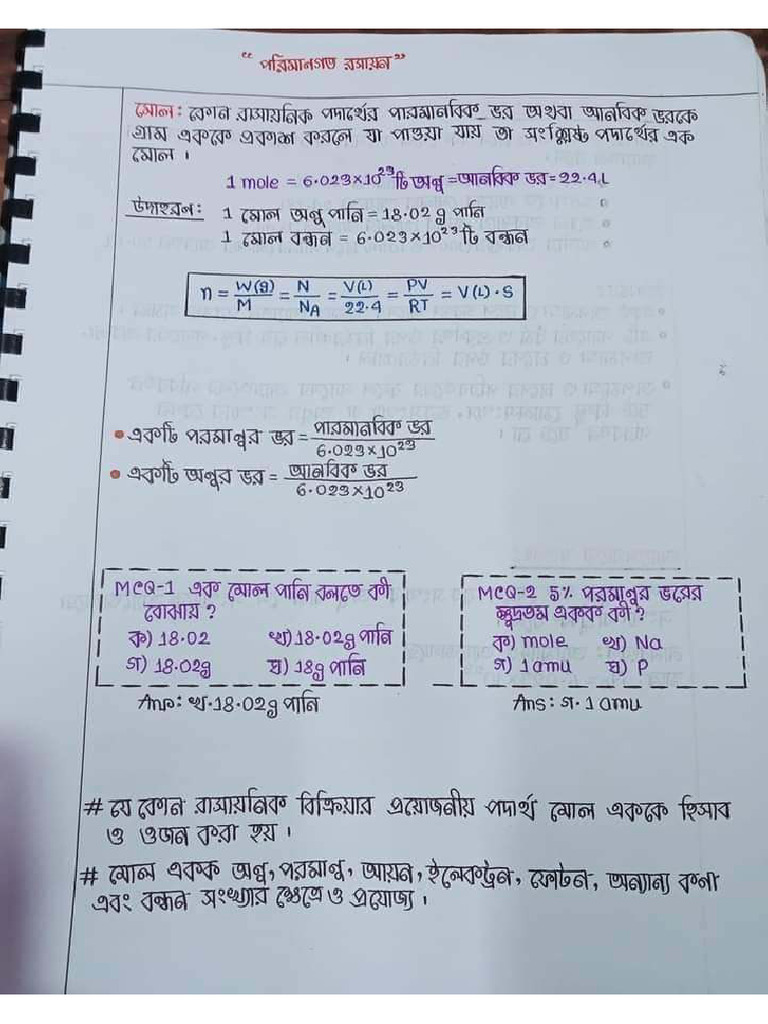 "পরিমানগত রসায়ন"
মোল: কোন রাসায়নিক পদার্থের পারমানবিক ভর অথবা আনবিক ভরকে
গ্রাম এককে প্রকাশ করলে যা পাওয়া যায় তা সংশ্লিষ্ট পদার্থের এক
মোল।
1 mole = 6.023×10²³ টি অণু = আনবিক ভর = 22.4L
উদাহরন: 1 মোল অণু পানি = 18.02 g পানি
1 মোল বন্ধন = 6.023×10²³ টি বন্ধন
n = W(g)/M = N/NA = V(L)/22.4 = PV/RT = V(L)·S
• একটি পরমাণুর ভর = পারমানবিক ভর/6.023×10²³
• একটি অণুর ভর = আনবিক ভর/6.023×10²³
MCQ-1 এক মোল পানি বলতে কী
বোঝায়?
ক) 18.02 খ) 18.02g পানি
গ) 18.02g ঘ) 18g পানি
Ans: খ. 18.02g পানি
MCQ-2 5% পরমাণুর ভরের
ক্ষুদ্রতম একক কী?
ক) mole খ) Na
গ) 1 amu ঘ) P
Ans: গ. 1 amu
# যে কোন রাসায়নিক বিক্রিয়ার প্রয়োজনীয় পদার্থ মোল এককে হিসাব
ও ওজন করা হয়।
# মোল একক অণু, পরমাণু, আয়ন, ইলেকট্রন, ফোটন, অন্যান্য কনা
এবং বন্ধন সংখ্যার ক্ষেত্রে ও প্রযোজ্য।